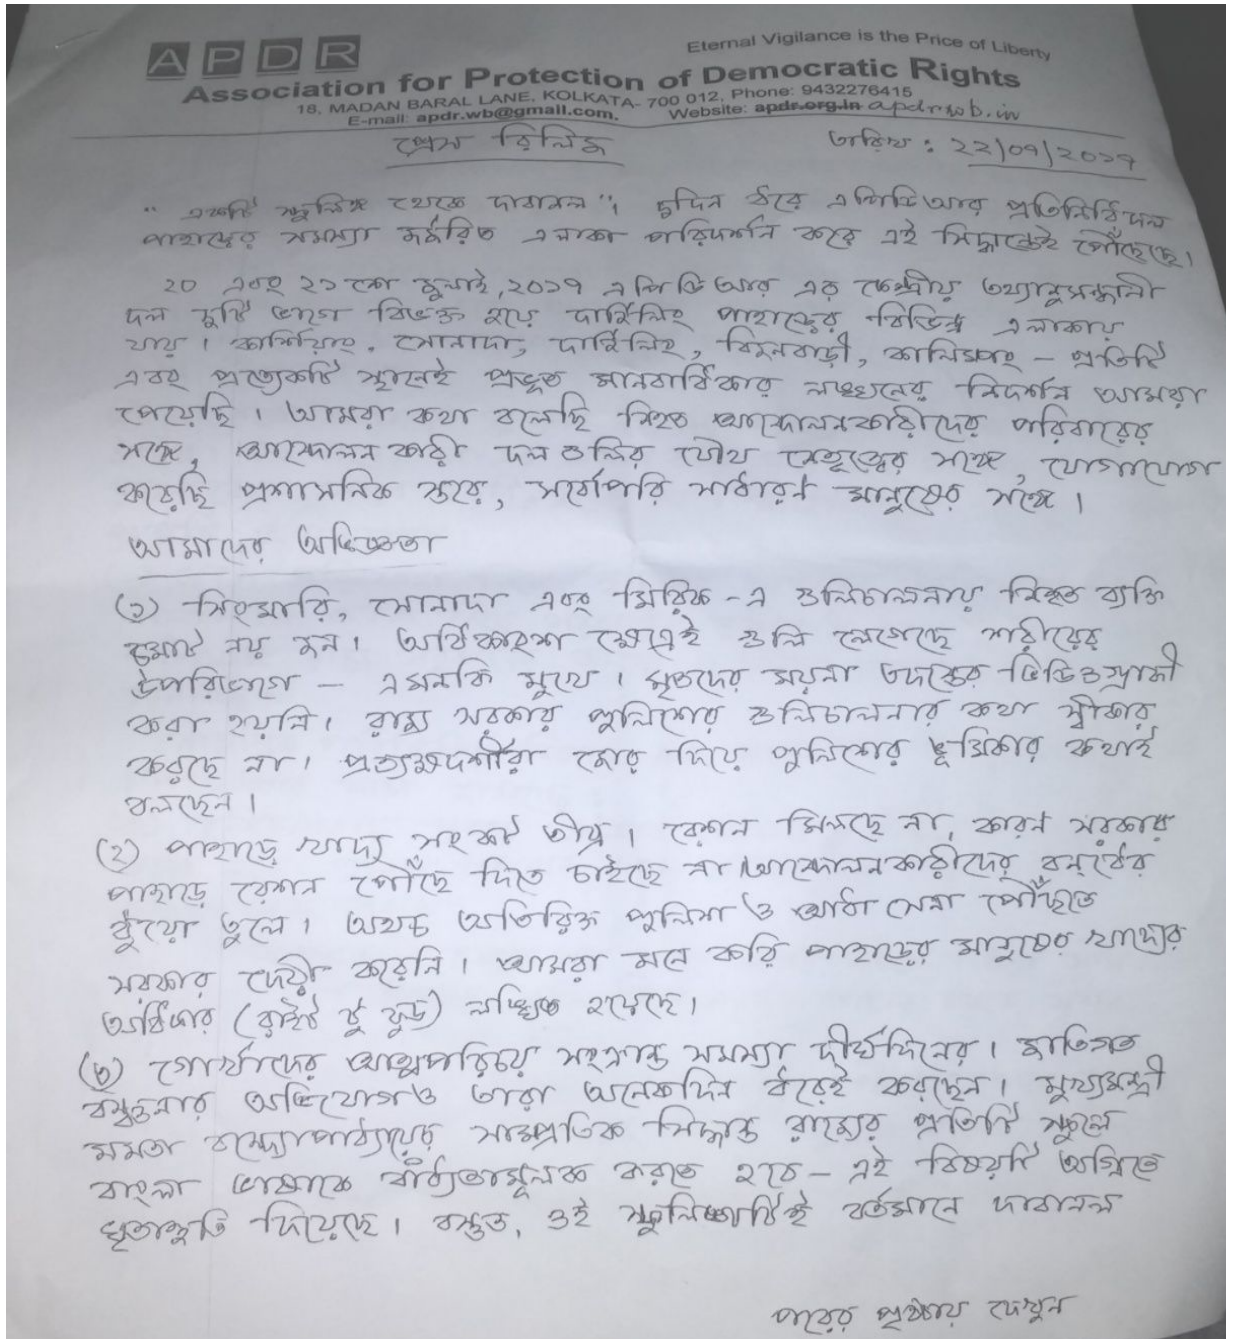 APDR
Eternal Vigilance is the Price of Liberty
Association for Protection of Democratic Rights
18, MADAN BARAL LANE, KOLKATA- 700 012, Phone: 9432276415
E-mail: apdr.wb@gmail.com. Website: apdr.org.in apdrwb.in
প্রেস রিলিজ তারিখ : ২২/০৭/২০১৭
"একটি স্ফুলিঙ্গ থেকে দাবানল"। দুদিন ধরে এপিডিআর প্রতিনিধিদল
পাহাড়ের সমস্যা জর্জরিত এলাকা পরিদর্শন করে এই সিদ্ধান্তেই পৌঁছেছে।
২০ এবং ২১ শে জুলাই, ২০১৭ এপিডিআর এর কেন্দ্রীয় তথ্যানুসন্ধানী
দল দুটি ভাগে বিভক্ত হয়ে দার্জিলিং পাহাড়ের বিভিন্ন এলাকায়
যায়। কার্শিয়াং, সোনাদা, দার্জিলিং, বিজনবাড়ী, কালিম্পং – প্রতিটি
এবং প্রত্যেকটি স্থানেই প্রভূত মানবাধিকার লঙ্ঘনের নিদর্শন আমরা
পেয়েছি। আমরা কথা বলেছি নিহত আন্দোলনকারীদের পরিবারের
সঙ্গে, আন্দোলনকারী দলগুলির যৌথ নেতৃত্বের সঙ্গে, যোগাযোগ
করেছি প্রশাসনিক স্তরে, সর্বোপরি সাধারণ মানুষের সঙ্গে।
আমাদের অভিজ্ঞতা
(১) সিংমারি, সোনাদা এবং মিরিক-এ গুলিচালনায় নিহত ব্যক্তি
মোট নয় জন। অধিকাংশ ক্ষেত্রেই গুলি লেগেছে শরীরের
উপরিভাগে – এমনকি মুখে। মৃতদের ময়না তদন্তের ভিডিওগ্রাফী
করা হয়নি। রাজ্য সরকার পুলিশের গুলিচালনার কথা স্বীকার
করছে না। প্রত্যক্ষদর্শীরা জোর দিয়ে পুলিশের ভূমিকার কথাই
বলছেন।
(২) পাহাড়ে খাদ্য সংকট তীব্র। রেশন মিলছে না, কারণ সরকার
পাহাড়ে রেশন পৌঁছে দিতে চাইছে না আন্দোলনকারীদের বন্‌ধের
ধুঁয়ো তুলে। অথচ অতিরিক্ত পুলিশ ও আধা সেনা পৌঁছতে
সরকার দেরী করেনি। আমরা মনে করি পাহাড়ের মানুষের খাদ্যের
অধিকার (রাইট টু ফুড) লঙ্ঘিত হয়েছে।
(৩) গোর্খাদের আত্মপরিচয় সংক্রান্ত সমস্যা দীর্ঘদিনের। জাতিগত
বঞ্চনার অভিযোগও তারা অনেকদিন ধরেই করছেন। মুখ্যমন্ত্রী
মমতা বন্দ্যোপাধ্যায়ের সাম্প্রতিক সিদ্ধান্ত রাজ্যের প্রতিটি স্কুলে
বাংলা ভাষাকে বাধ্যতামূলক করতে হবে – এই বিষয়টি অগ্নিতে
ঘৃতাহুতি দিয়েছে। বস্তুত, ওই স্ফুলিঙ্গটিই বর্তমানে দাবানল
পরের পৃষ্ঠায় দেখুন